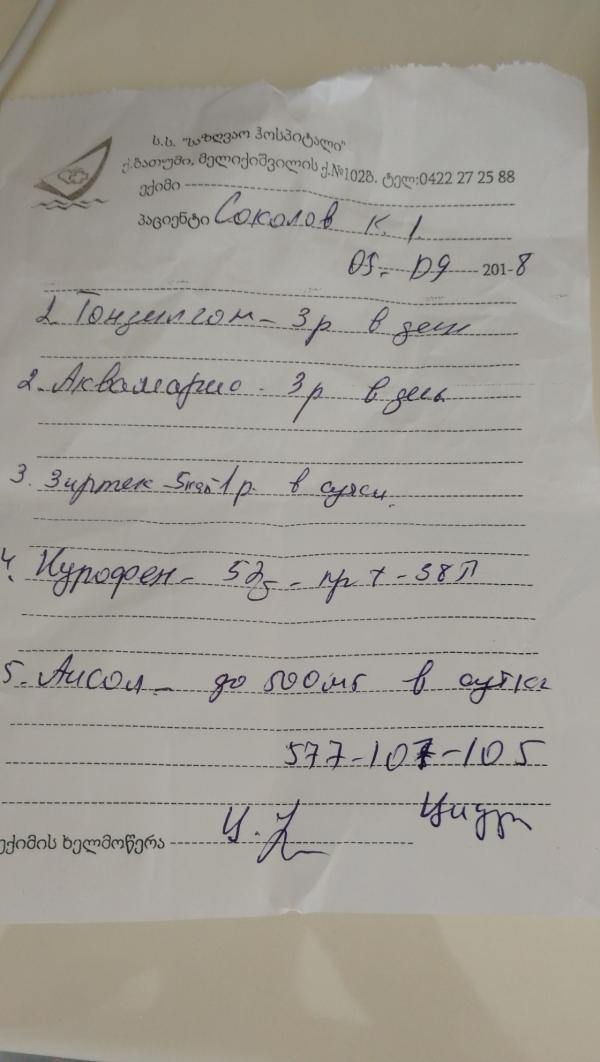 ს.ს. "საზღვაო ჰოსპიტალი"
ქ.ბათუმი, მელიქიშვილის ქ.№102ბ. ტელ:0422 27 25 88
ექიმი
პაციენტი Соколов К. 1.
05- 09 201-8
1. Тонзилгон - 3 р в день
2. Аквамарис - 3 р в день
3. Зиртек - 5кап 1 р. в сутки.
4. Нурофен - при t - 38
5. Аисол - до 500мг в сутки
577-107-105
ექიმის ხელმოწერა